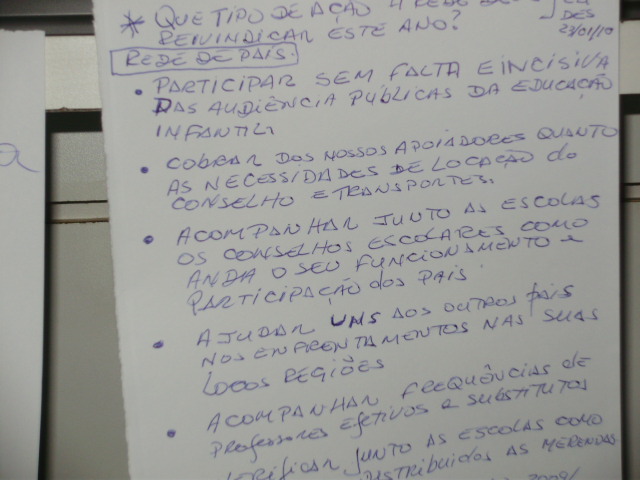 * QUE TIPO DE AÇÃO A REDE DEVE
REIVINDICAR ESTE ANO?
DES
23/01/10
REDE DE PAIS.
• PARTICIPAR SEM FALTA E INCISIVA
DAS AUDIÊNCIA PÚBLICAS DA EDUCAÇÃO
INFANTIL
• COBRAR DOS NOSSOS APOIADORES QUANTO
AS NECESSIDADES DE LOCAÇÃO do
CONSELHO E TRANSPORTES.
• ACOMPANHAR JUNTO AS ESCOLAS
OS CONSELHOS ESCOLARES COMO
ANDA O SEU FUNCIONAMENTO e
PARTICIPAÇÃO dos PAIS.
• AJUDAR UNS AOS OUTROS PAIS
NOS ENFRENTAMENTOS NAS SUAS
REGIÕES
• ACOMPANHAR FREQUÊNCIAS de
PROFESSORES EFETIVOS e SUBSTITUTOS
VERIFICAR JUNTO AS ESCOLAS COMO
DISTRIBUIDOS AS MERENDAS
2009/
a